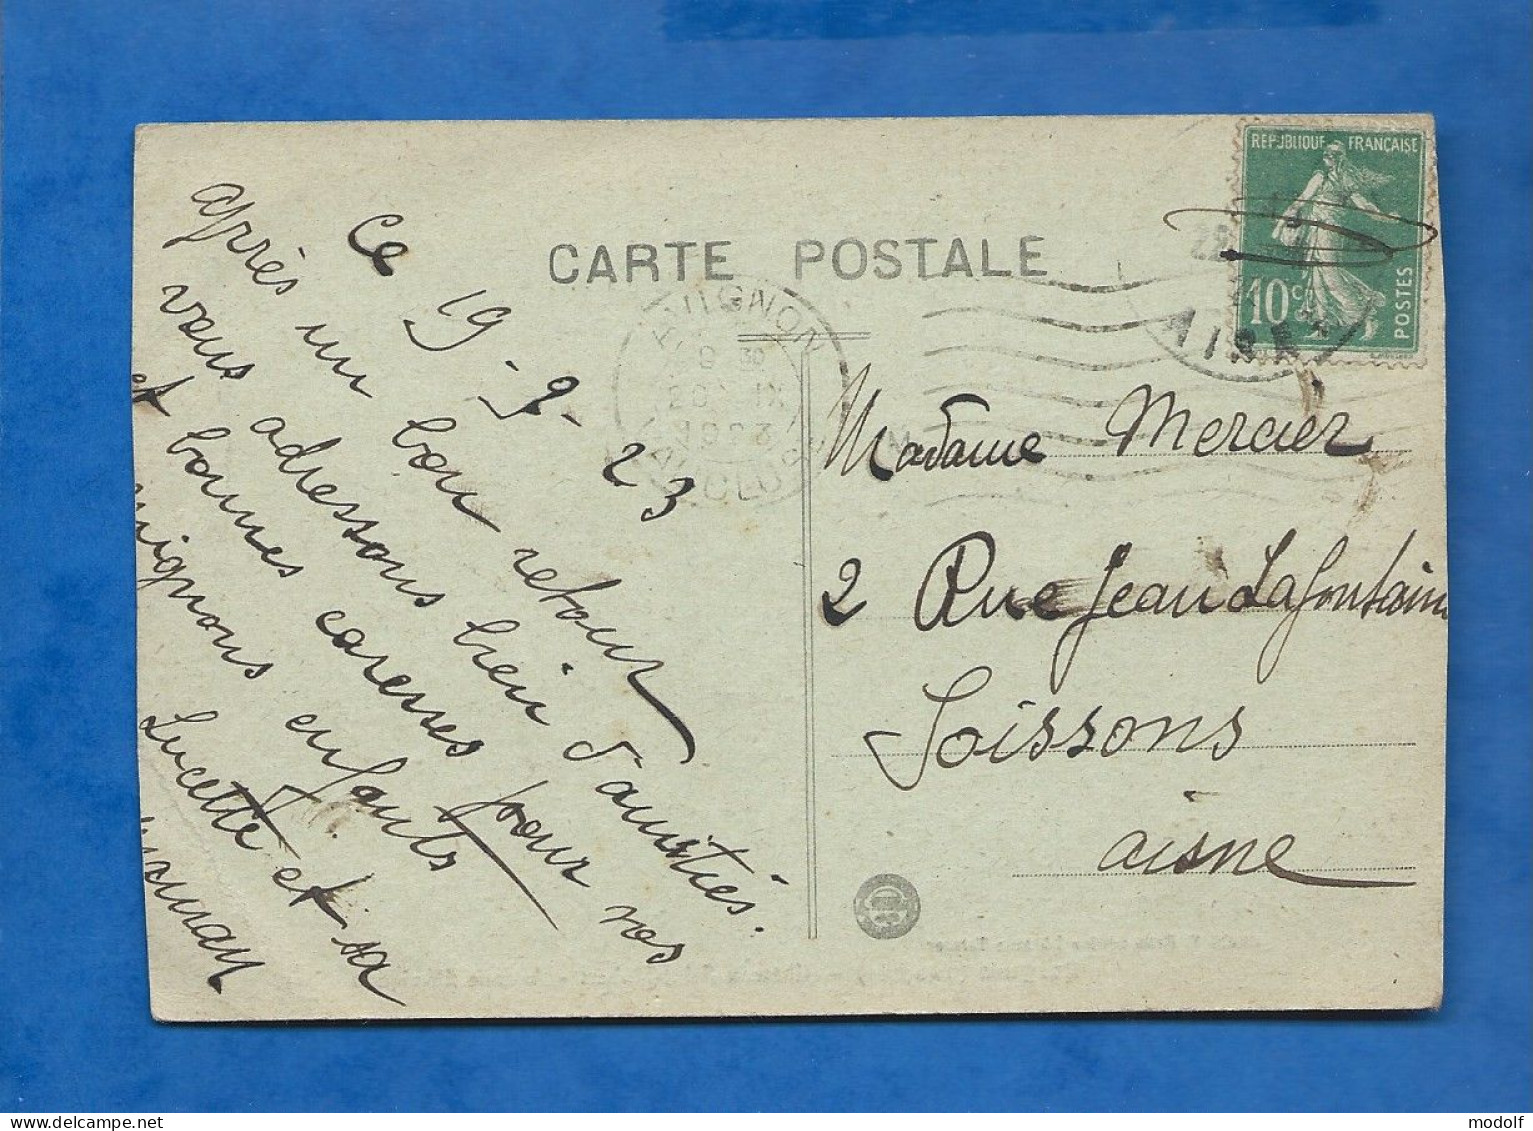 CARTE POSTALE
Ce 19-9-23
après un bon retour
vous adressons bien d'amitiés.
et bonnes caresses pour vos
mignons enfants
Lucette et sa
maman
REPUBLIQUE FRANÇAISE
10c
POSTES
AVIGNON
VAUCLUSE
Madame Mercier
2 Rue Jean Lafontaine
Soissons
aisne
modolf